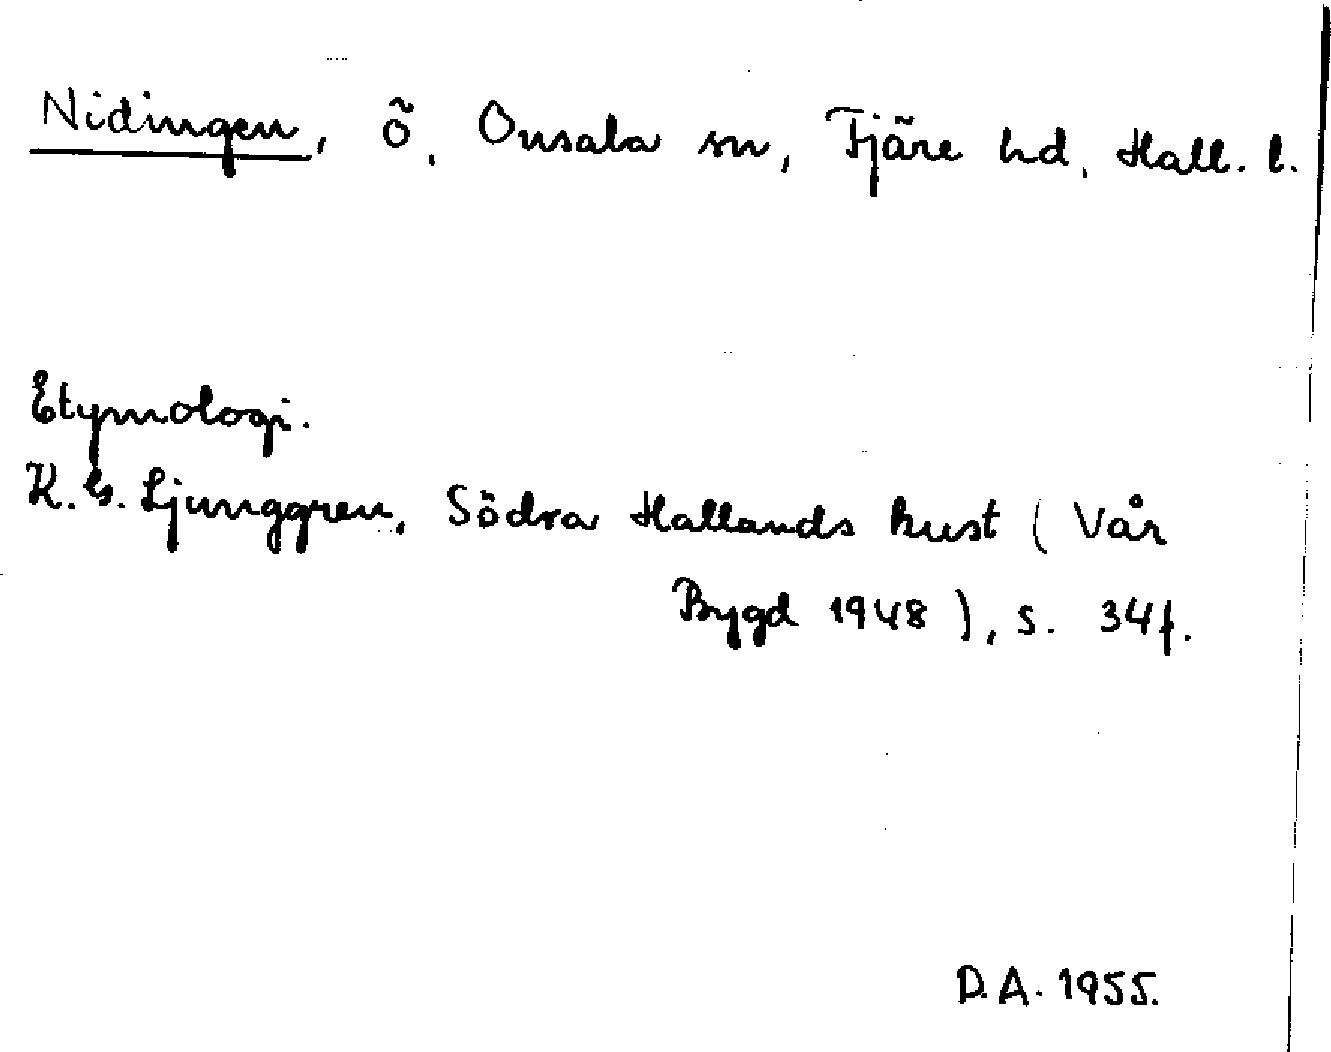 Nidingen, ö, Onsala sn, Fjäre hd, Hall. l.
Etymologi.
K. G. Ljunggren, Södra Hallands kust ( Vår
Bygd 1948 ), s. 34 f.
D. A. 1955.